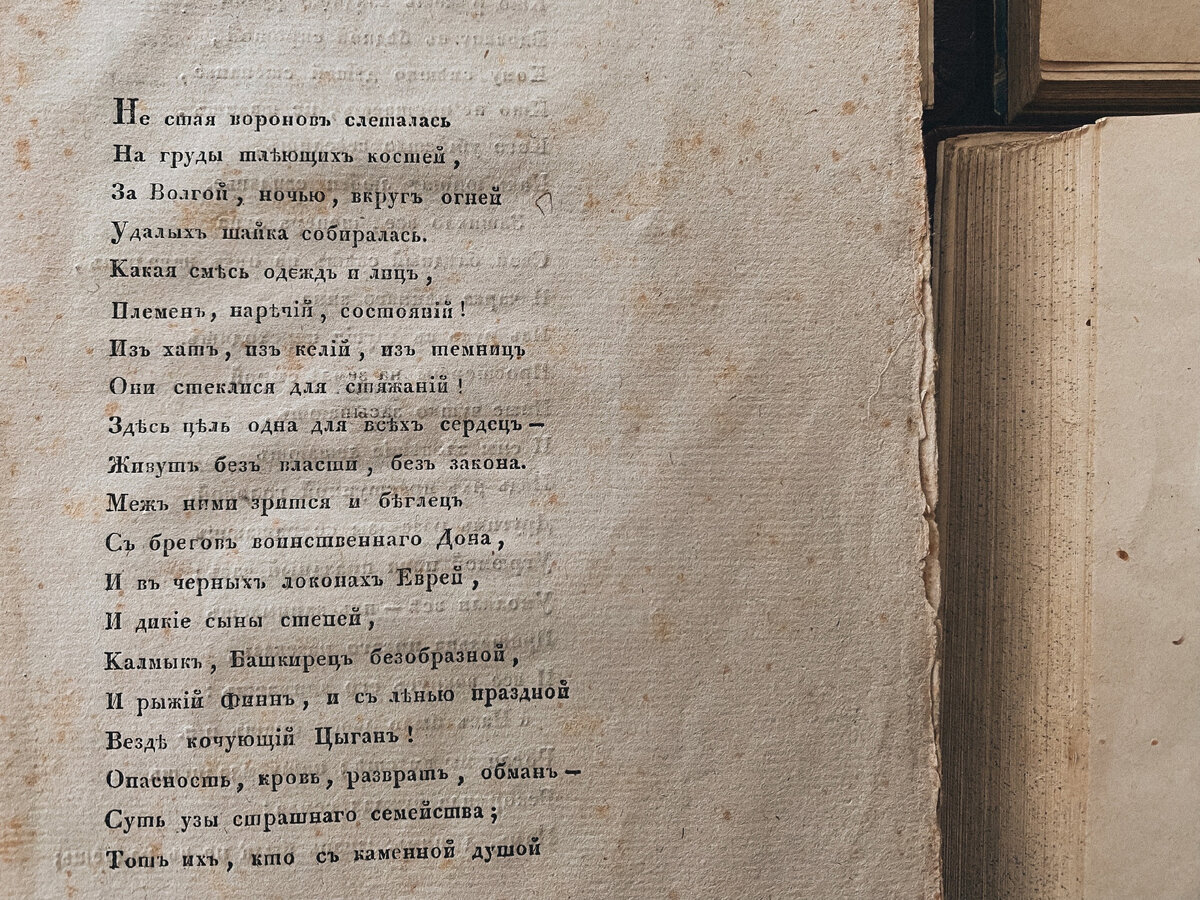 Не стая вороновъ слеталась
На груды тлѣющихъ костей,
За Волгой, ночью, вкругъ огней
Удалыхъ шайка собиралась.
Какая смѣсь одеждъ и лицъ,
Племенъ, нарѣчій, состояній!
Изъ хатъ, изъ келій, изъ темницъ
Они стеклися для стяжаній!
Здѣсь цѣль одна для всѣхъ сердецъ—
Живутъ безъ власти, безъ закона.
Межъ ними зрится и бѣглецъ
Съ бреговъ воинственнаго Дона,
И въ черныхъ локонахъ Еврей,
И дикіе сыны степей,
Калмыкъ, Башкирецъ безобразной,
И рыжій Финнъ, и съ лѣнью праздной
Вездѣ кочующій Цыганъ!
Опасность, кровь, развратъ, обманъ—
Суть узы страшнаго семейства;
Тотъ ихъ, кто съ каменной душой